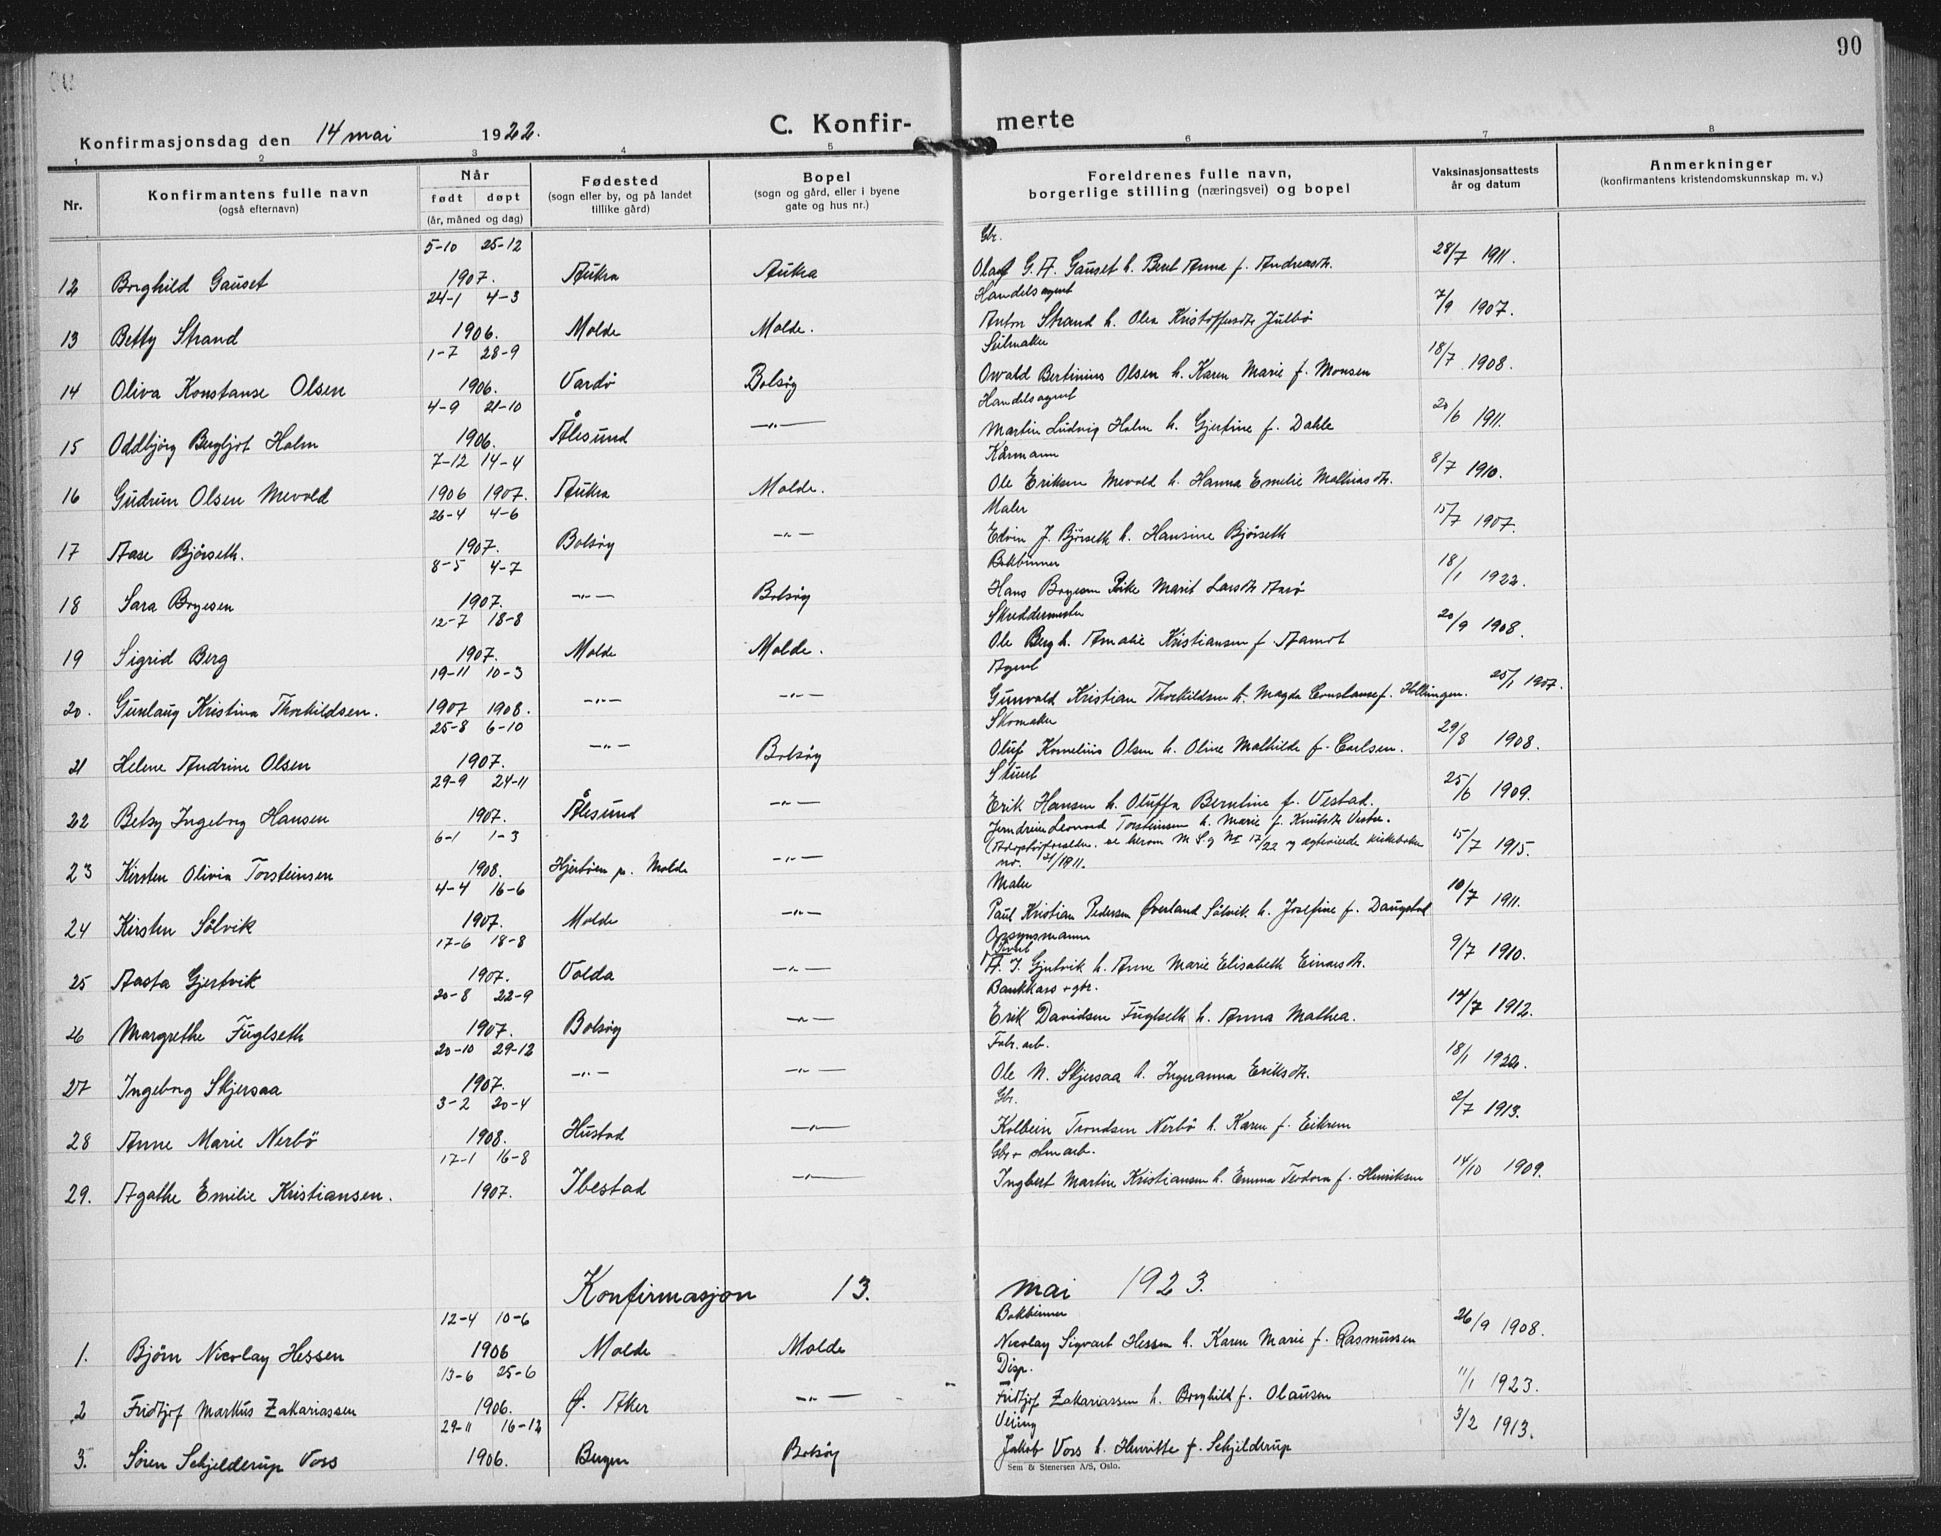 90
Konfirmasjonsdag den 14 mai 1922. C. Konfirmerte
1 2 3 4 5 6 7 8
Nr. Konfirmantens fulle navn (også efternavn) Når født døpt (år, måned og dag) Fødested (sogn eller by, og på landet tillike gård) Bopel (sogn og gård, eller i byene gate og hus nr.) Foreldrenes fulle navn, borgerlige stilling (næringsvei) og bopel Vaksinasjonsattests år og datum Anmerkninger (konfirmantens kristendomskunnskap m. v.)
5-10 25-12 Gbr.
12 Borghild Gauset 1907. Aukra Aukra Olaf G. A. Gauset h. Beret Anna f. Andreasdt. 28/7 1911.
24-1 4-3 Handelsagent
13 Betty Strand 1906. Molde Molde. Anton Strand h. Olea Kristoffersdt. Julbö 7/9 1907.
1-7 28-9 Seilmaker
14 Oliva Konstanse Olsen 1906. Vardö Bolsöy Osvald Bertinius Olsen h. Karen Marie f. Monsen 18/7 1908.
4-9 21-10 Handelsagent
15 Oddbjörg Bergljot Holm 1906. Ålesund —"— Martin Ludvig Holm h. Gjertine f. Dahle 20/6 1911.
7-12 14-4 Kårmann
16 Gudrun Olsen Mevold 1906 1907. Aukra Molde. Ole Eriksen Mevold h. Hanna Emelie Mathiasdt. 8/7 1910.
26-4 4-6 Maler
17 Aase Björseth. 1907. Bolsöy —"— Edvin J. Björseth h. Hansine Björseth 15/7 1907.
8-5 4-7 Bokbinner
18 Sara Boyesen 1907. —"— Bolsöy Hans Boyesen Marit Larsdt. 18/1 1922.
12-7 18-8 Skreddermester
19 Sigrid Berg 1907. Molde Molde. Ole Berg h. Amalie Kristiansen f. Aamot 20/9 1908.
19-11 10-3 Agent
20. Gunlaug Kristina Thorkildsen. 1907 1908. —"— —"— Gunvald Kristian Thorkildsen h. Magda Constanse f. Hollingen. 25/1 1907.
25-8 6-10 Skomaker
21 Helene Andrine Olsen 1907. —"— Bolsöy Oluf Kornelius Olsen h. Oline Mathilde f. Carlsen. 29/8 1908.
29-9 24-11 Stuert
22 Betsy Ingeborg Hansen 1907. Ålesund —"— Erik Hansen h. Oluffa Berntine f. Vestad. 25/6 1909.
6-1 1-3 Jerndreier Leonard Torsteinsen h. Marie f. Knutsdt.
23 Kirsten Olivia Torsteinsen 1908. Hjertöen pr. Molde —"— 15/7 1915.
nr. 31/1911.
4-4 16-6 Maler
24 Kirsten Sölvik 1907. Molde —"— Paul Kristian Pedersen Överland Sölvik h. Josefine f. Daugstad 10/7 1911.
17-6 18-8 Opsynsmann
25 Aasta Gjertvik 1907. Volda —"— A. I. Gjertvik h. Anne Marie Elisabeth Einarsdt. 9/7 1910.
20-8 22-9 Bankkass + gbr.
26 Margrethe Fuglseth 1907. Bolsöy —"— Erik Davidsen Fuglseth h. Anna Mathea. 14/7 1912.
20-10 29-12 Fabr. arb.
27 Ingeborg Skjersaa 1907. —"— —"— Ole N. Skjersaa h. Ingeranna Eriksdt. 18/1 1922.
3-2 20-4 Gbr.
28 Anne Marie Nerbö 1908. Hustad —"— Kolbein Trondsen Nerbö h. Karen f. Eikrem 2/7 1913.
17-1 16-8 Gbr + stenarb.
29. Agathe Emilie Kristiansen. 1907. Ibestad —"— Ingbert Martin Kristiansen h. Emma Teodora f. Henriksen 14/10 1909.
Konfirmasjon 13. mai 1923.
12-4 10-6 Bokbinner
1. Bjørn Nicolay Hessen 1906 Molde Molde Nicolay Sigvart Hessen h. Karen Marie f. Rasmussen 26/9 1908.
13-6 25-6 Disp.
2 Fridtjof Markus Zakariassen 1906. Ø. Aker —"— Fridtjof Zakariassen h. Borghild f. Olausen 11/1 1923.
29-11 16-12
3. Søren Schjelderup Voss 1906. Bergen Bolsöy Jakob Voss h. Henritte f. Schjelderup 3/2 1913.
Sem & Stenersen A/S, Oslo.